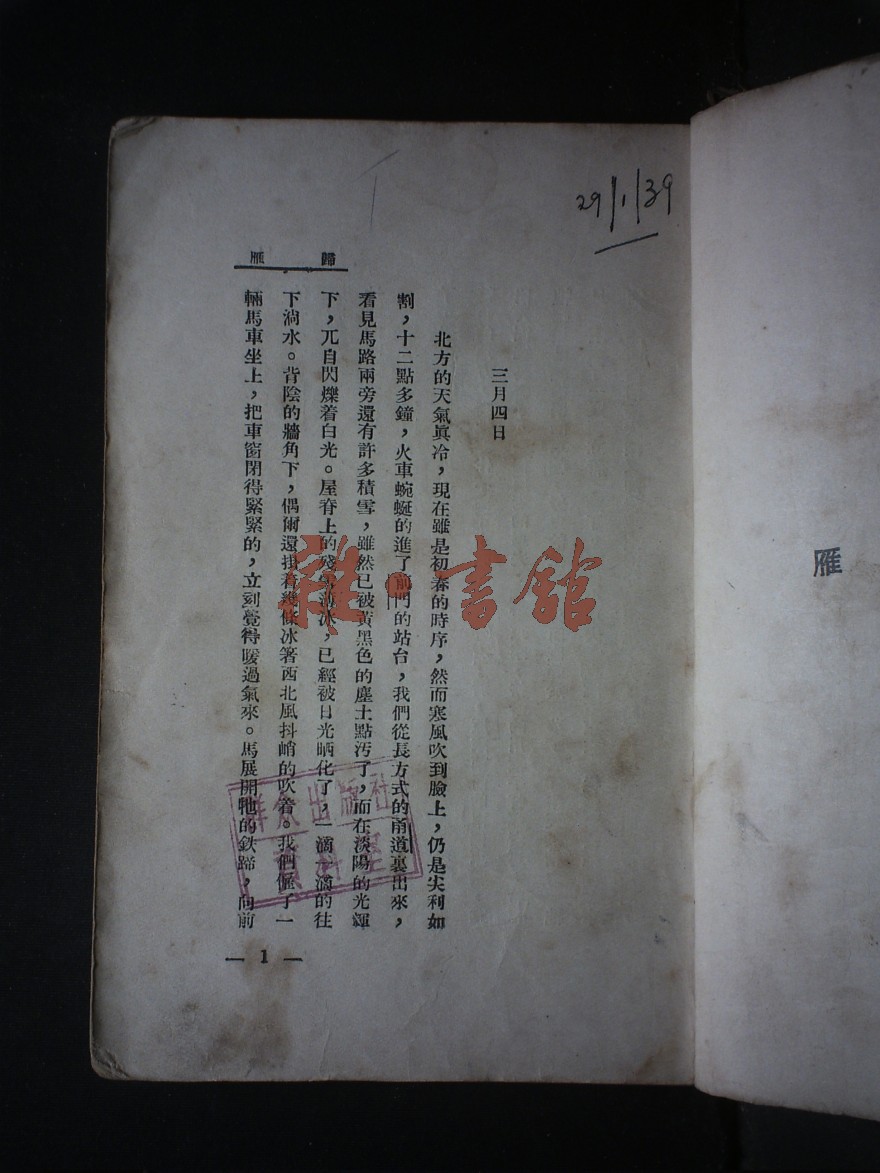 雁
29/1/39
歸雁
三月四日
北方的天氣眞冷，現在雖是初春的時序，然而寒風吹到臉上，仍是尖利如
割，十二點多鐘，火車蜿蜒的進了前門的站台，我們從長方式的甬道裏出來，
看見馬路兩旁還有許多積雪，雖然已被黃黑色的塵土點汚了，而在淡陽的光輝
下，兀自閃爍着白光。屋脊上的殘雪薄冰，已經被日光晒化了，一滴一滴的往
下淌水。背陰的牆角下，偶爾還掛着幾條冰箸西北風抖峭的吹着。我們僱了一
輛馬車坐上，把車窗閉得緊緊的，立刻覺得暖過氣來。馬展開牠的鉄蹄，向前
— 1 —
雜·書館
群众出版社
資料室